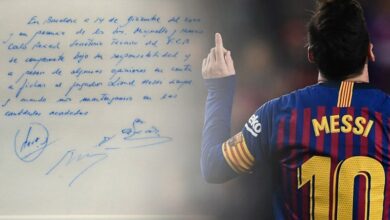 En Barcelona a 14 de diciembre del 2000
y en presencia de los Srs. Minguella y Horacio
Carles Rexach Secretario Técnico del F.C.B
se compromete bajo su responsabilidad y
a pesar de algunas opiniones en contra
a fichar al jugador Lionel Messi siempre
y cuando nos mantengamos en las
cantidades acordadas
beko
MESSI
10